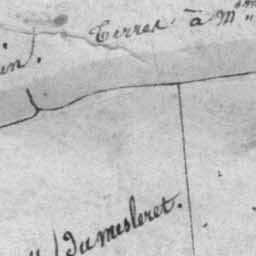 Terres à M.
in.
du mesleret.